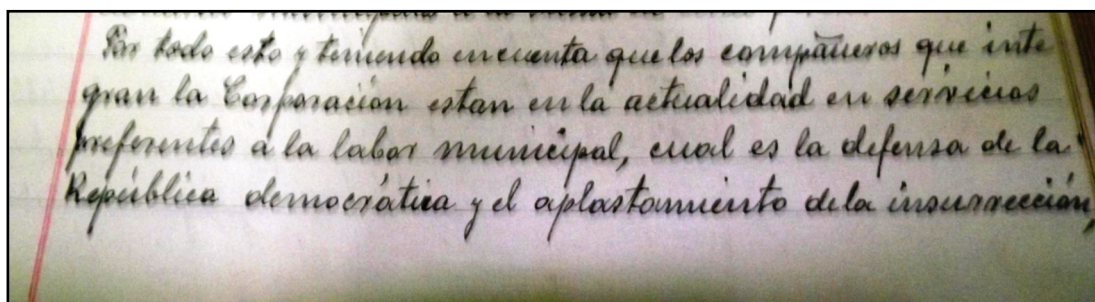 Por todo esto y teniendo en cuenta que los compañeros que inte
gran la Corporación estan en la actualidad en servicios
preferentes a la labor municipal, cual es la defensa de la
República democrática y el aplastamiento de la insurrección,